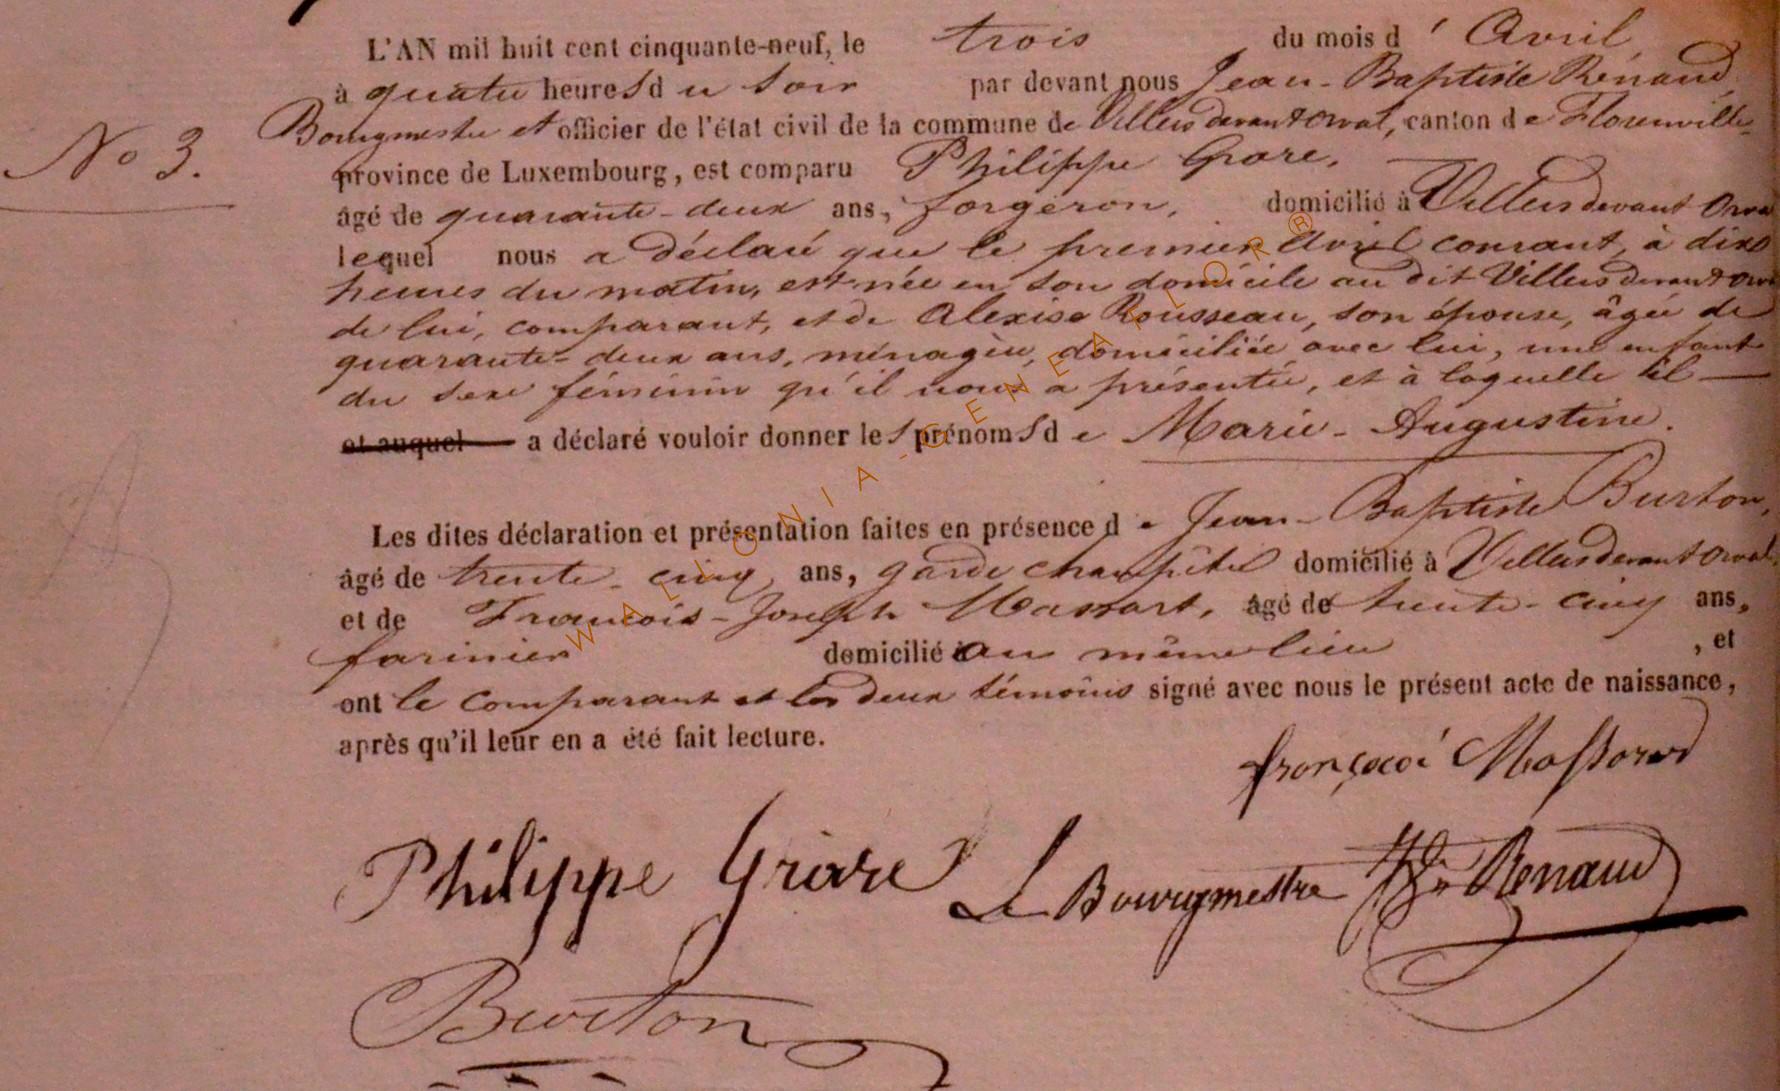 L'AN mil huit cent cinquante-neuf, le trois du mois d' Avril,
à quatre heures du soir par devant nous Jean-Baptiste Rénaud,
Bourgmestre et officier de l'état civil de la commune de Villers devant Orval, canton de Florenville
N° 3.
province de Luxembourg, est comparu Philippe Grare,
âgé de quarante-deux ans, forgeron, domicilié à Villers devant Orval
lequel nous a déclaré que le premier Avril courant, à dix
heures du matin, est née en son domicile au dit Villers devant Orval
de lui, comparant, et de Alexise Rousseau, son épouse, âgée de
quarante-deux ans, ménagère, domiciliée avec lui, une enfant
du sexe féminin qu'il nous a présentée, et à laquelle il
et auquel a déclaré vouloir donner les prénoms de Marie-Augustine.
Les dites déclaration et présentation faites en présence de Jean-Baptiste Burton,
âgé de trente-cinq ans, garde champêtre domicilié à Villers devant Orval,
et de François-Joseph Massart, âgé de trente-cinq ans,
farinier domicilié au même lieu, et
ont le comparant et les deux témoins signé avec nous le présent acte de naissance,
après qu'il leur en a été fait lecture.
françooi Massard
Philippe Grare Le Bourgmestre Renaud
Burton
WALLONIA-GENEAFLOR®